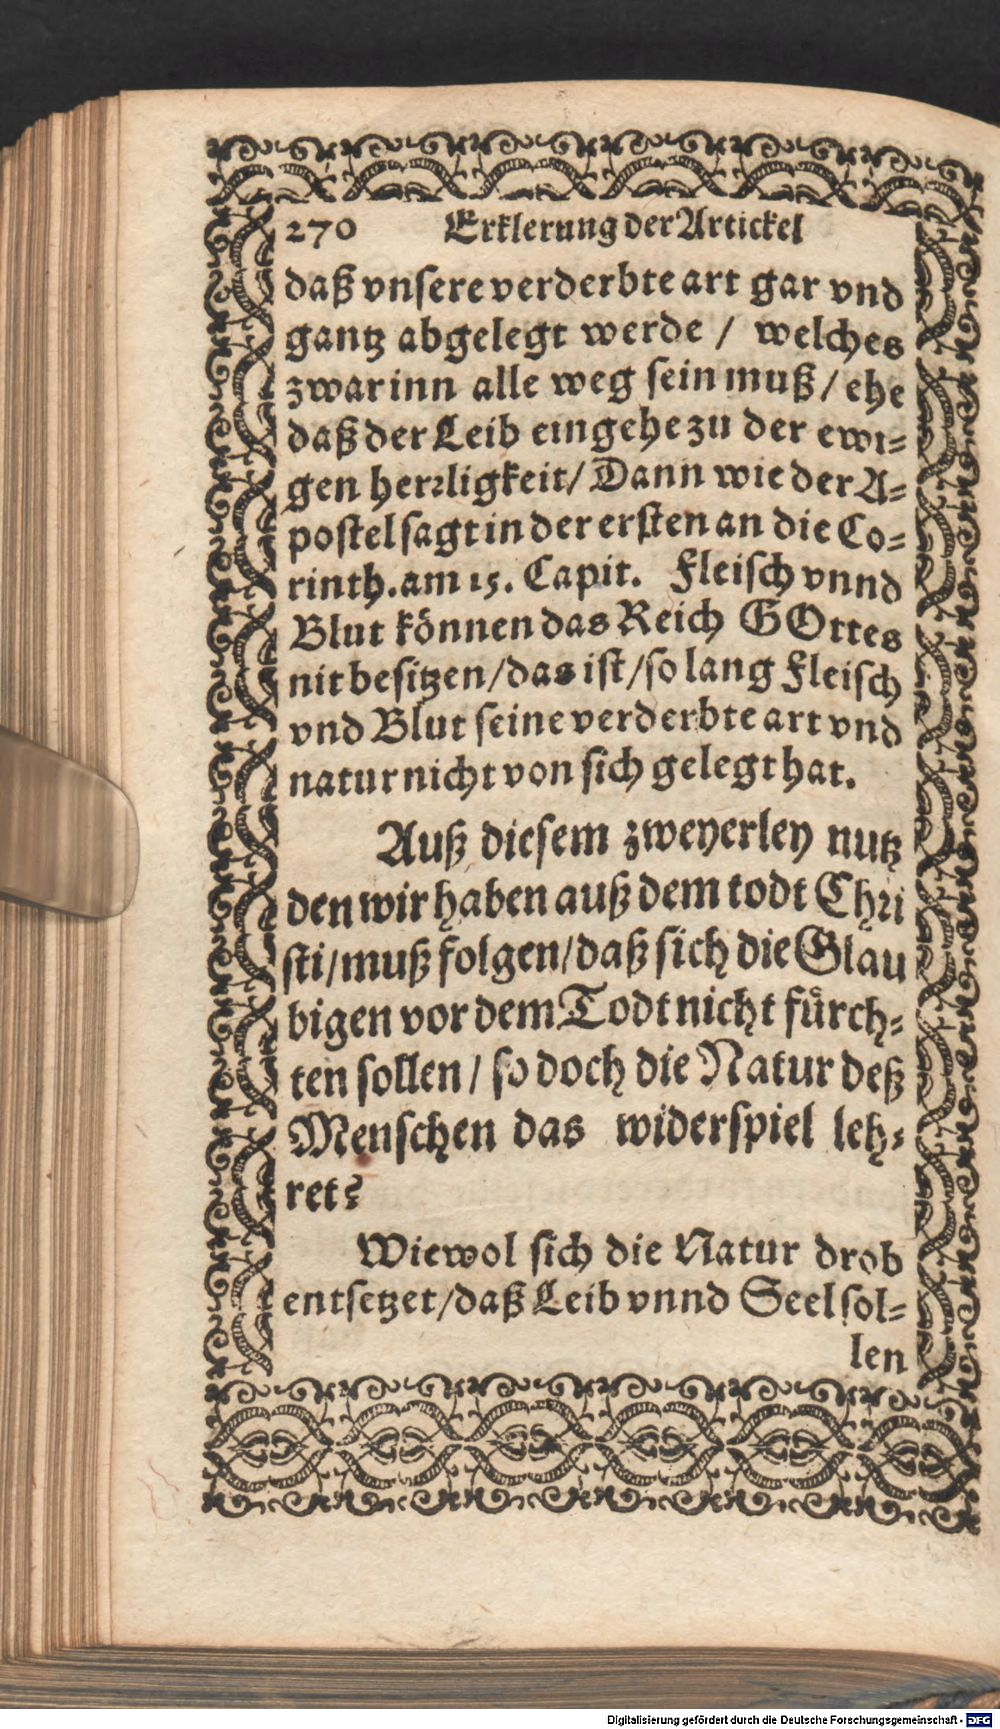 270 Erklerung der Artickel
daß vnsere verderbte art gar vnd
gantz abgelegt werde / welches
zwar inn alle weg sein muß / ehe
daß der Leib eingehe zu der ewi-
gen herrligkeit / Dann wie der A-
postel sagt in der ersten an die Co-
rinth. am 15. Capit. Fleisch vnnd
Blut können das Reich GOttes
nit besitzen / das ist / so lang Fleisch
vnd Blut seine verderbte art vnd
natur nicht von sich gelegt hat.
Auß diesem zweyerley nutz
den wir haben auß dem todt Chri
sti / muß folgen / daß sich die Glau
bigen vor dem Todt nicht fürch-
ten sollen / so doch die Natur deß
Menschen das widerspiel leh-
ret?
Wiewol sich die Natur drob
entsetzet / daß Leib vnnd Seel sol-
len
Digitalisierung gefördert durch die Deutsche Forschungsgemeinschaft - DFG